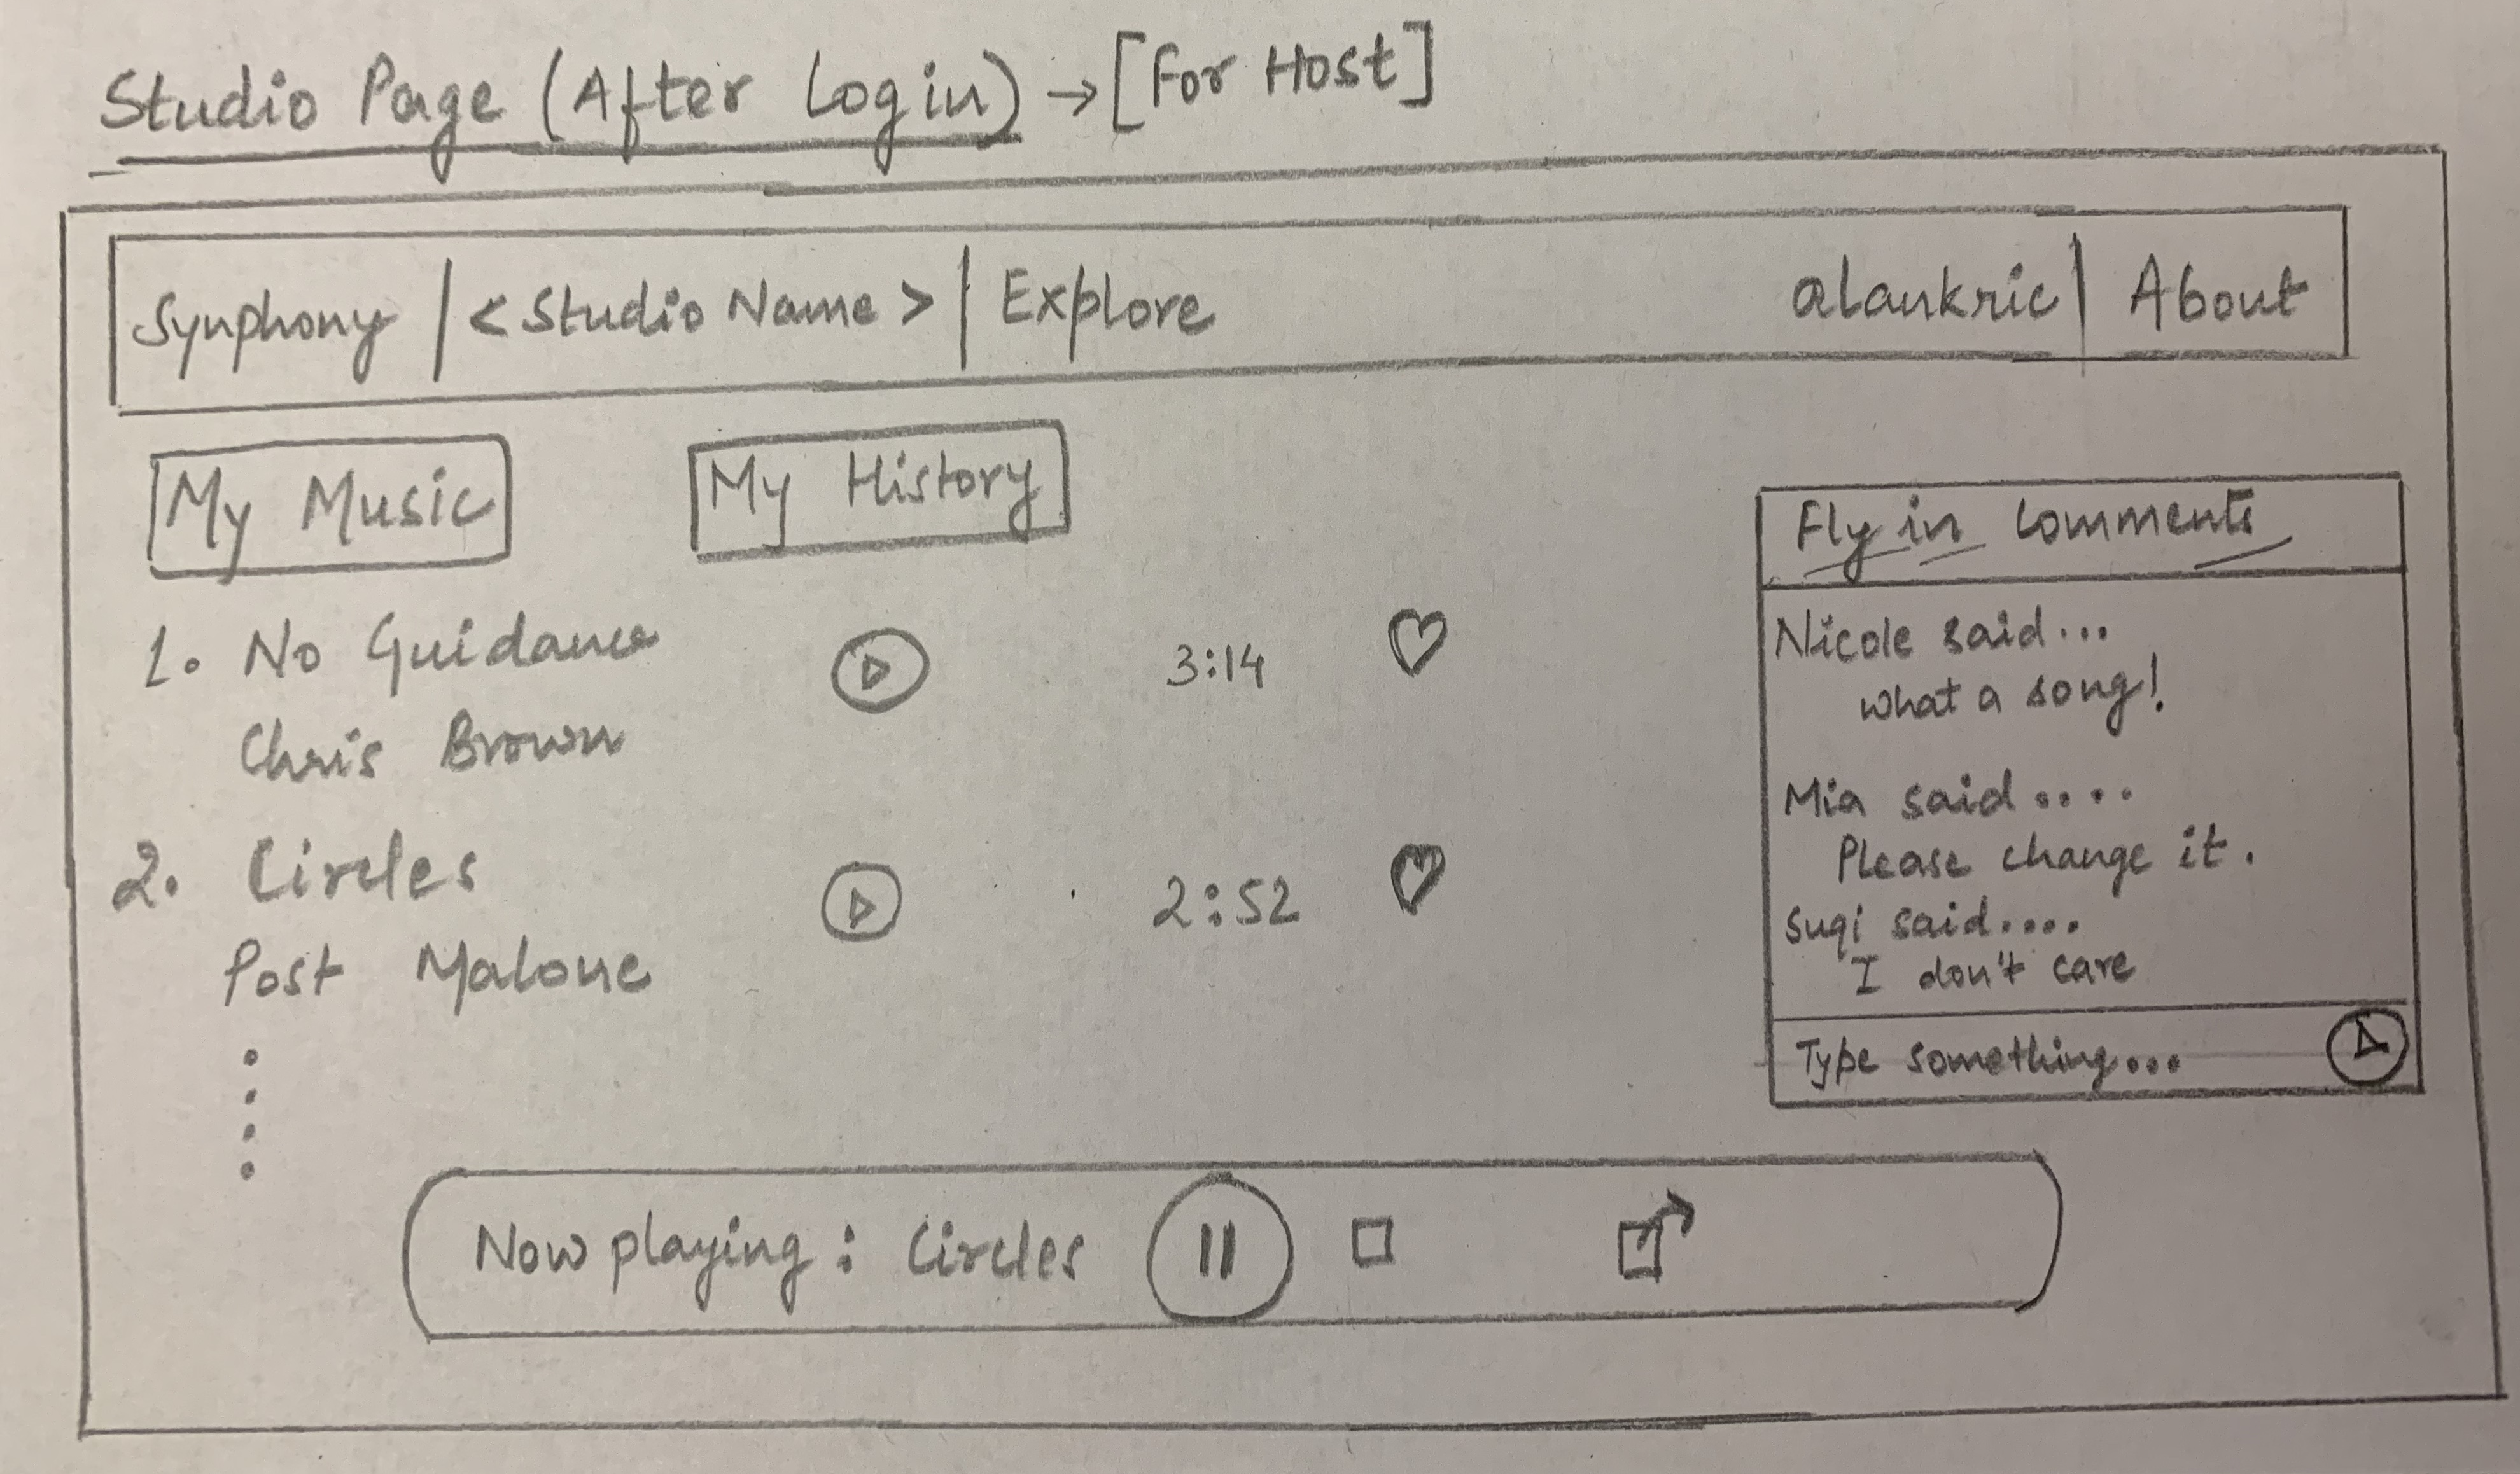 Studio Page (After Login) → [For Host]
Synphony | < Studio Name > | Explore alankric | About
My Music My History
1. No Guidance 3:14
Chris Brown
2. Circles 2:52
Post Malone
Fly in Comments
Nicole said...
what a song!
Mia said....
Please change it.
Suqi said....
I don't care
Type something...
Now playing: Circles